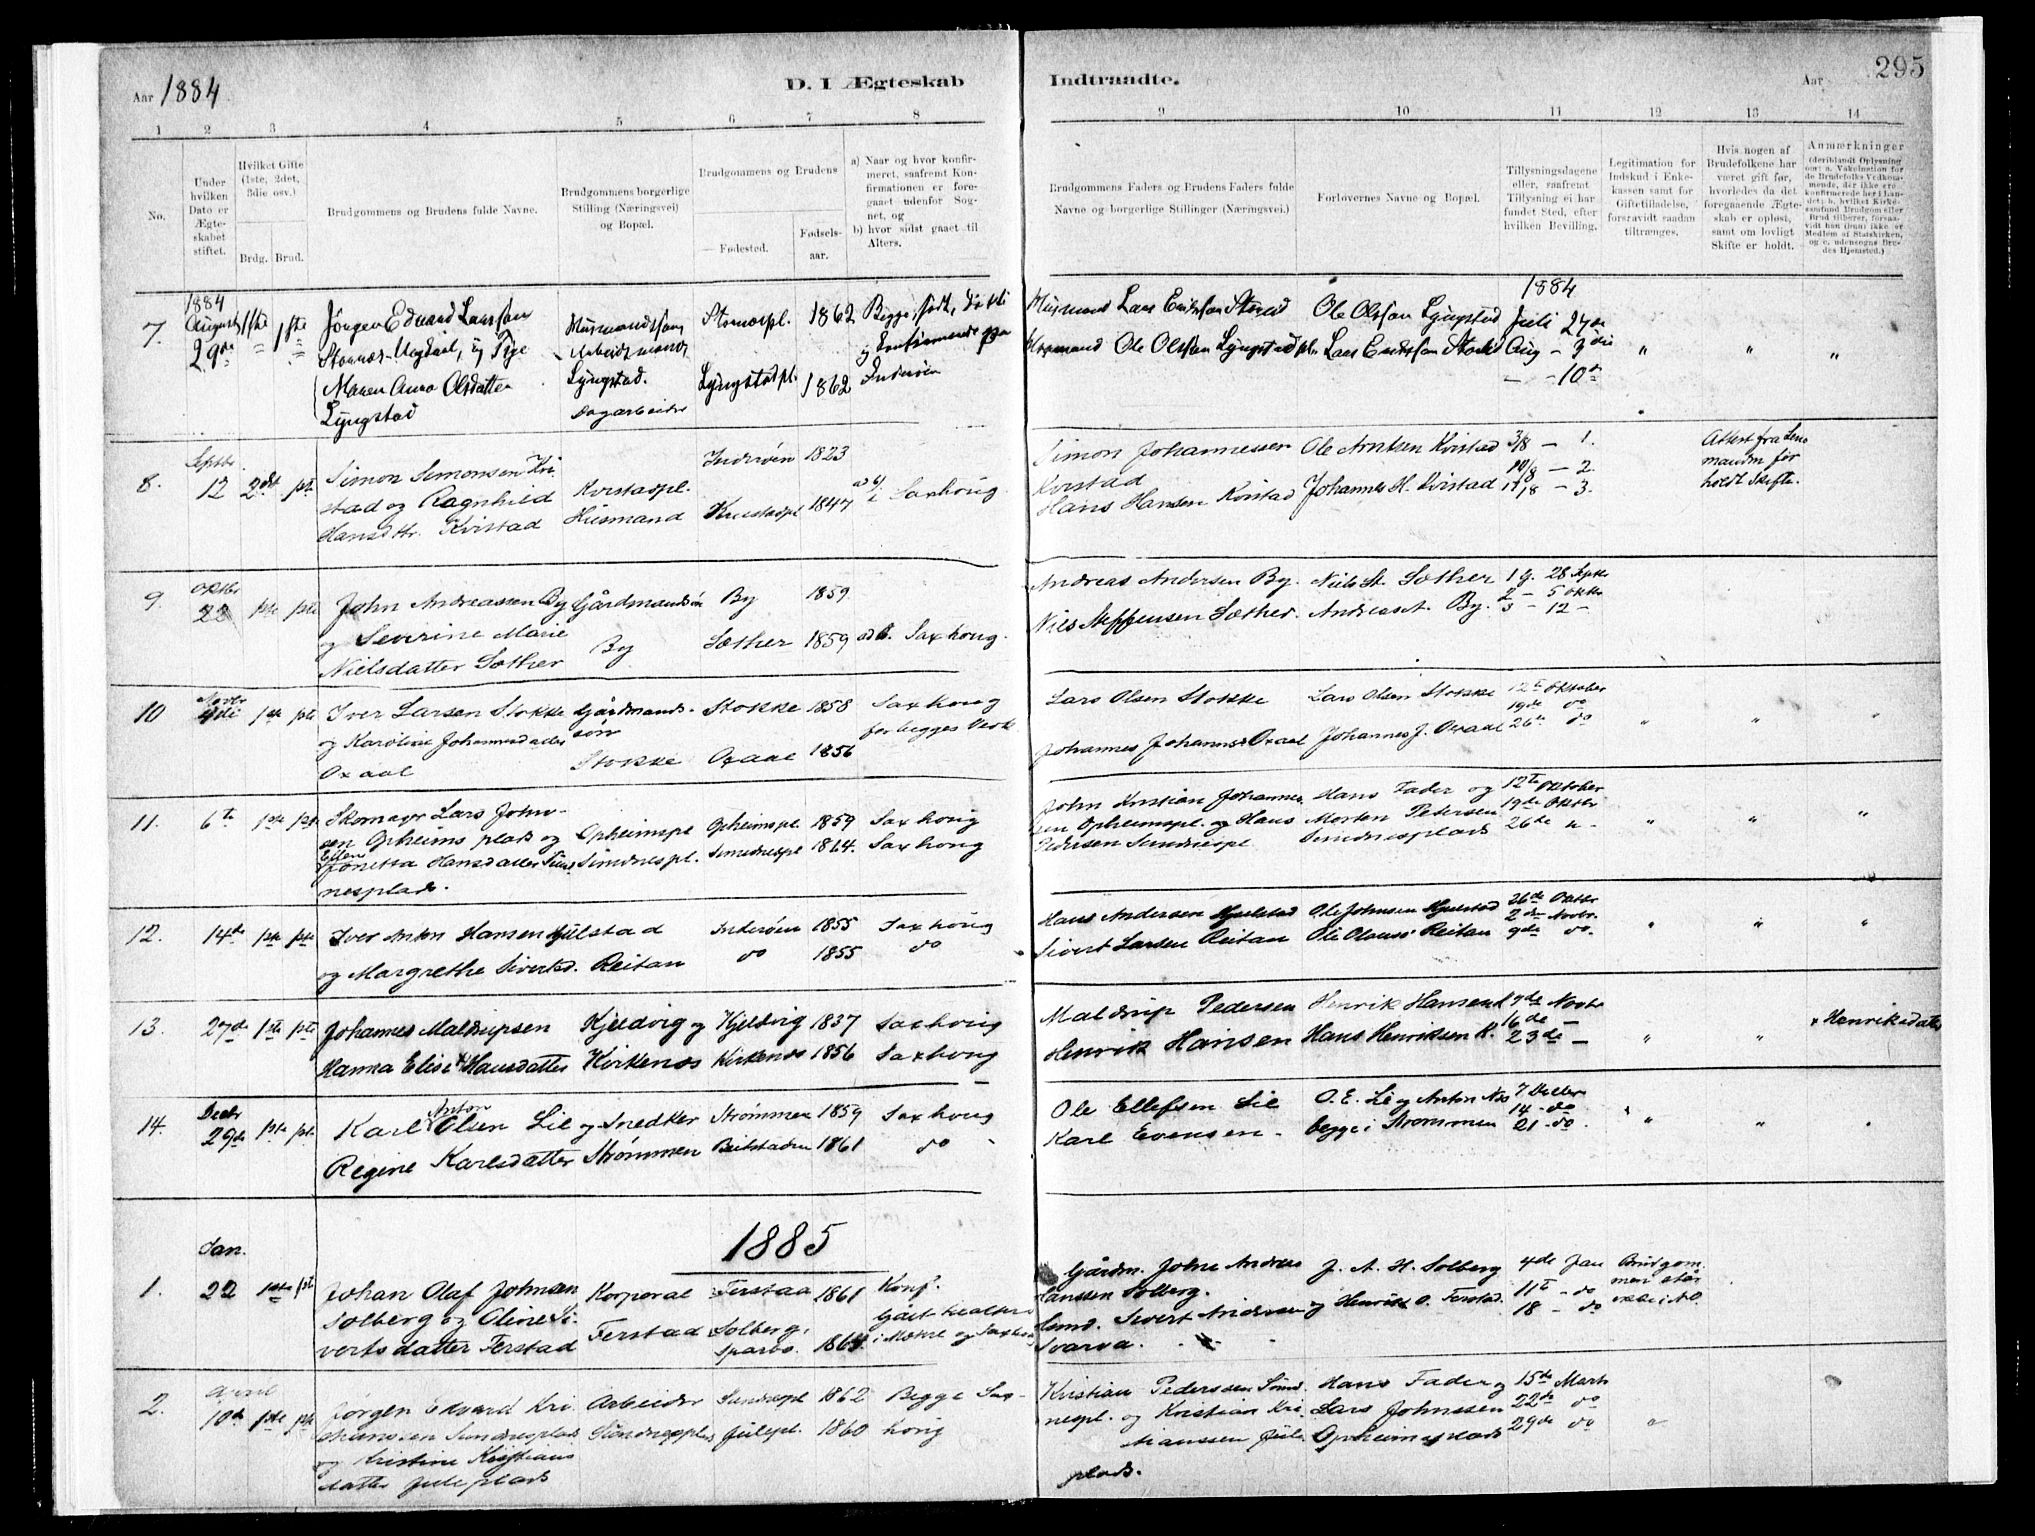 Aar 1884
D. I Ægteskab
Indtraadte.
Aar
295
1 2 3 4 5 6 7 8 9 10 11 12 13 14
No.
Under hvilken Dato er Ægteskabet stiftet.
Hvilket Gifte (1ste, 2det, 3die osv.)
Brdg. Brud.
Brudgommens og Brudens fulde Navne.
Brudgommens borgerlige Stilling (Næringsvei) og Bopæl.
Brudgommens og Brudens
Fødested.
Fødselsaar.
a) Naar og hvor konfirmeret, saafremt Konfirmationen er foregaaet udenfor Sognet, og
b) hvor sidst gaaet til Alters.
Brudgommens Faders og Brudens Faders fulde Navne og borgerlige Stillinger (Næringsvei.)
Forlovernes Navne og Bopæl.
Tillysningsdagene eller, saafremt Tillysning ei har fundet Sted, efter hvilken Bevilling.
Legitimation for Indskud i Enkekassen samt for Giftetilladelse, forsaavidt saadan tiltrænges.
Hvis nogen af Brudefolkene har været gift før, hvorledes da det foregaaende Ægteskab er opløst, samt om lovligt Skifte er holdt.
Anmærkninger
1884
7. August 29de 1ste 1ste
Jörgen Eduard Larssøn
og Pige
Maren Anna Olsdatter
Lyngstad
Husmandssøn
Arbeidsmand
Lyngstad.
Dagarbeider
1862
Lyngstadpl. 1862
Begge født, døbte
og Konfirmerede paa
Inderøen
Husmand Lars Eriksson
Husmand Ole Olsson Lyngstadpl.
Ole Olsson Lyngstad
Lars Eriksson
1884
Juli 27de
Aug - 3die
- - 10de
" " "
8. Septbr. 12 2det 1ste
Simon Simonsen Kvi
stad og Ragnhild
Hansdtr. Kvistad
Kvistadpl.
Husmand
Inderøen 1823
1847
Saxhoug
Simon Johannessen
Kvistad
Hans Hansen Kvistad
Ole Arntsen Kvistad
Johannes H. Kvistad
3/8 - 1.
10/8 - 2.
17/8 - 3.
Attest fra Lens
manden for
holdt Skifte.
9. Oktbr 22 1ste 1ste
John Andreassen By
og Severine Marie
Nielsdatter Sæther
Gårdmandssøn
By
By 1859
Sæther 1859
Saxhoug.
Andreas Andersen By.
Niels Steffensen Sæther.
Niels St. Sæther
Andreas A. By.
1 g. 28 Septbr
2 - 5 Oktbr
3 - 12 -
10 Novbr 4de 1ste 1ste
Iver Larsen Stokke
og Karoline Johannesdatter
Oxaal
Gårdmands-
søn
Stokke
Stokke 1858
Oxaal 1856
Saxhoug
for begges Vedk
Lars Olsen Stokke
Johannes Johannes Oxaal
Lars Olsen Stokke
Johannes J. Oxaal
12te Oktober
19de do
26de do
" " "
11. 6te 1ste 1ste
Skomager Lars John-
sen Opheims plads og
Ellen
Jonetta Hansdatter Sund
nesplads.
Opheimspl
Sundnespl.
Opheimspl. 1859
Sundnespl 1864.
Saxhoug
Saxhoug
John Kristian Johannes
sen Opheimspl. og Hans
Pedersen Sundnespl
Hans Fader og
Morten Petersen
Sundnesplads
12te Oktober
19de Oktbr
26de "
" " "
12. 14de 1ste 1ste
Iver Anton Hansen Hjelstad
og Margrethe Sivertsd. Reitan
Inderøen 1855
do 1855
Saxhoug
do
Hans Andersen Hjelstad
Sivert Larsen Reitan
Ole Johnsen Hjelstad
Ole Olauss Reitan
26de Oktbr
2den Novbr.
9de do.
" " "
13. 27de 1ste 1ste
Johannes Maldrupsen
Hanna Elise × Hansdatter
Kjeldvig og
Kirkenæs
Kjeldvig 1837
Kirkenæs 1856
Saxhoug
Saxhoug
Maldrup Pedersen
Henrik Hansen
Henrik Hansen K
Hans Henriksen K.
9de Novbr
16de -
23de -
" "
× Henriksdatter
14. Decbr 29de 1ste 1ste
Karl Anton Elien Lie og
Regine Karlsdatter
Snedker
Strømmen
Strømmen 1859
Beitstaden 1861
Saxhoug
do
Ole Ellefsen Lie
Karl Evensen.
O. E. Lie og Anton Næs
begge i Strømmen
7 Decbr
14 - do
21 - do
" "
1885
Jan.
1. 22 1ste 1ste
Johan Olaf Johnsen
Solberg og Oline Si
verts datter Ferstad
Korporal
Ferstad
Ferstad 1861
Solberg,
Sparbo. 1864.
Konf.
Gårdm. John Andreas
Hanssen Solberg.
Husmd. Sivert Andersen
Svarva.
J. A. H. Solberg
og Henrik O. Ferstad.
4de Jan
11te - do
18 - do
Brudgom
men står
2. April 10de 1ste 1ste
Jørgen Edvard Kri
stiansen Sundnesplads
og Kristine Kristians
datter Juleplads
Arbeider
Sundnesplads
Sundnespl 1862
Julepl. 1860
Begge Sax-
houg
Kristian Pedersen Sund
nespl. og Kristian Kri
stianssen Jule
plads.
Hans Fader og
Lars Johnssen
Opheimsplads
15de Marts
22de do
29de do
"